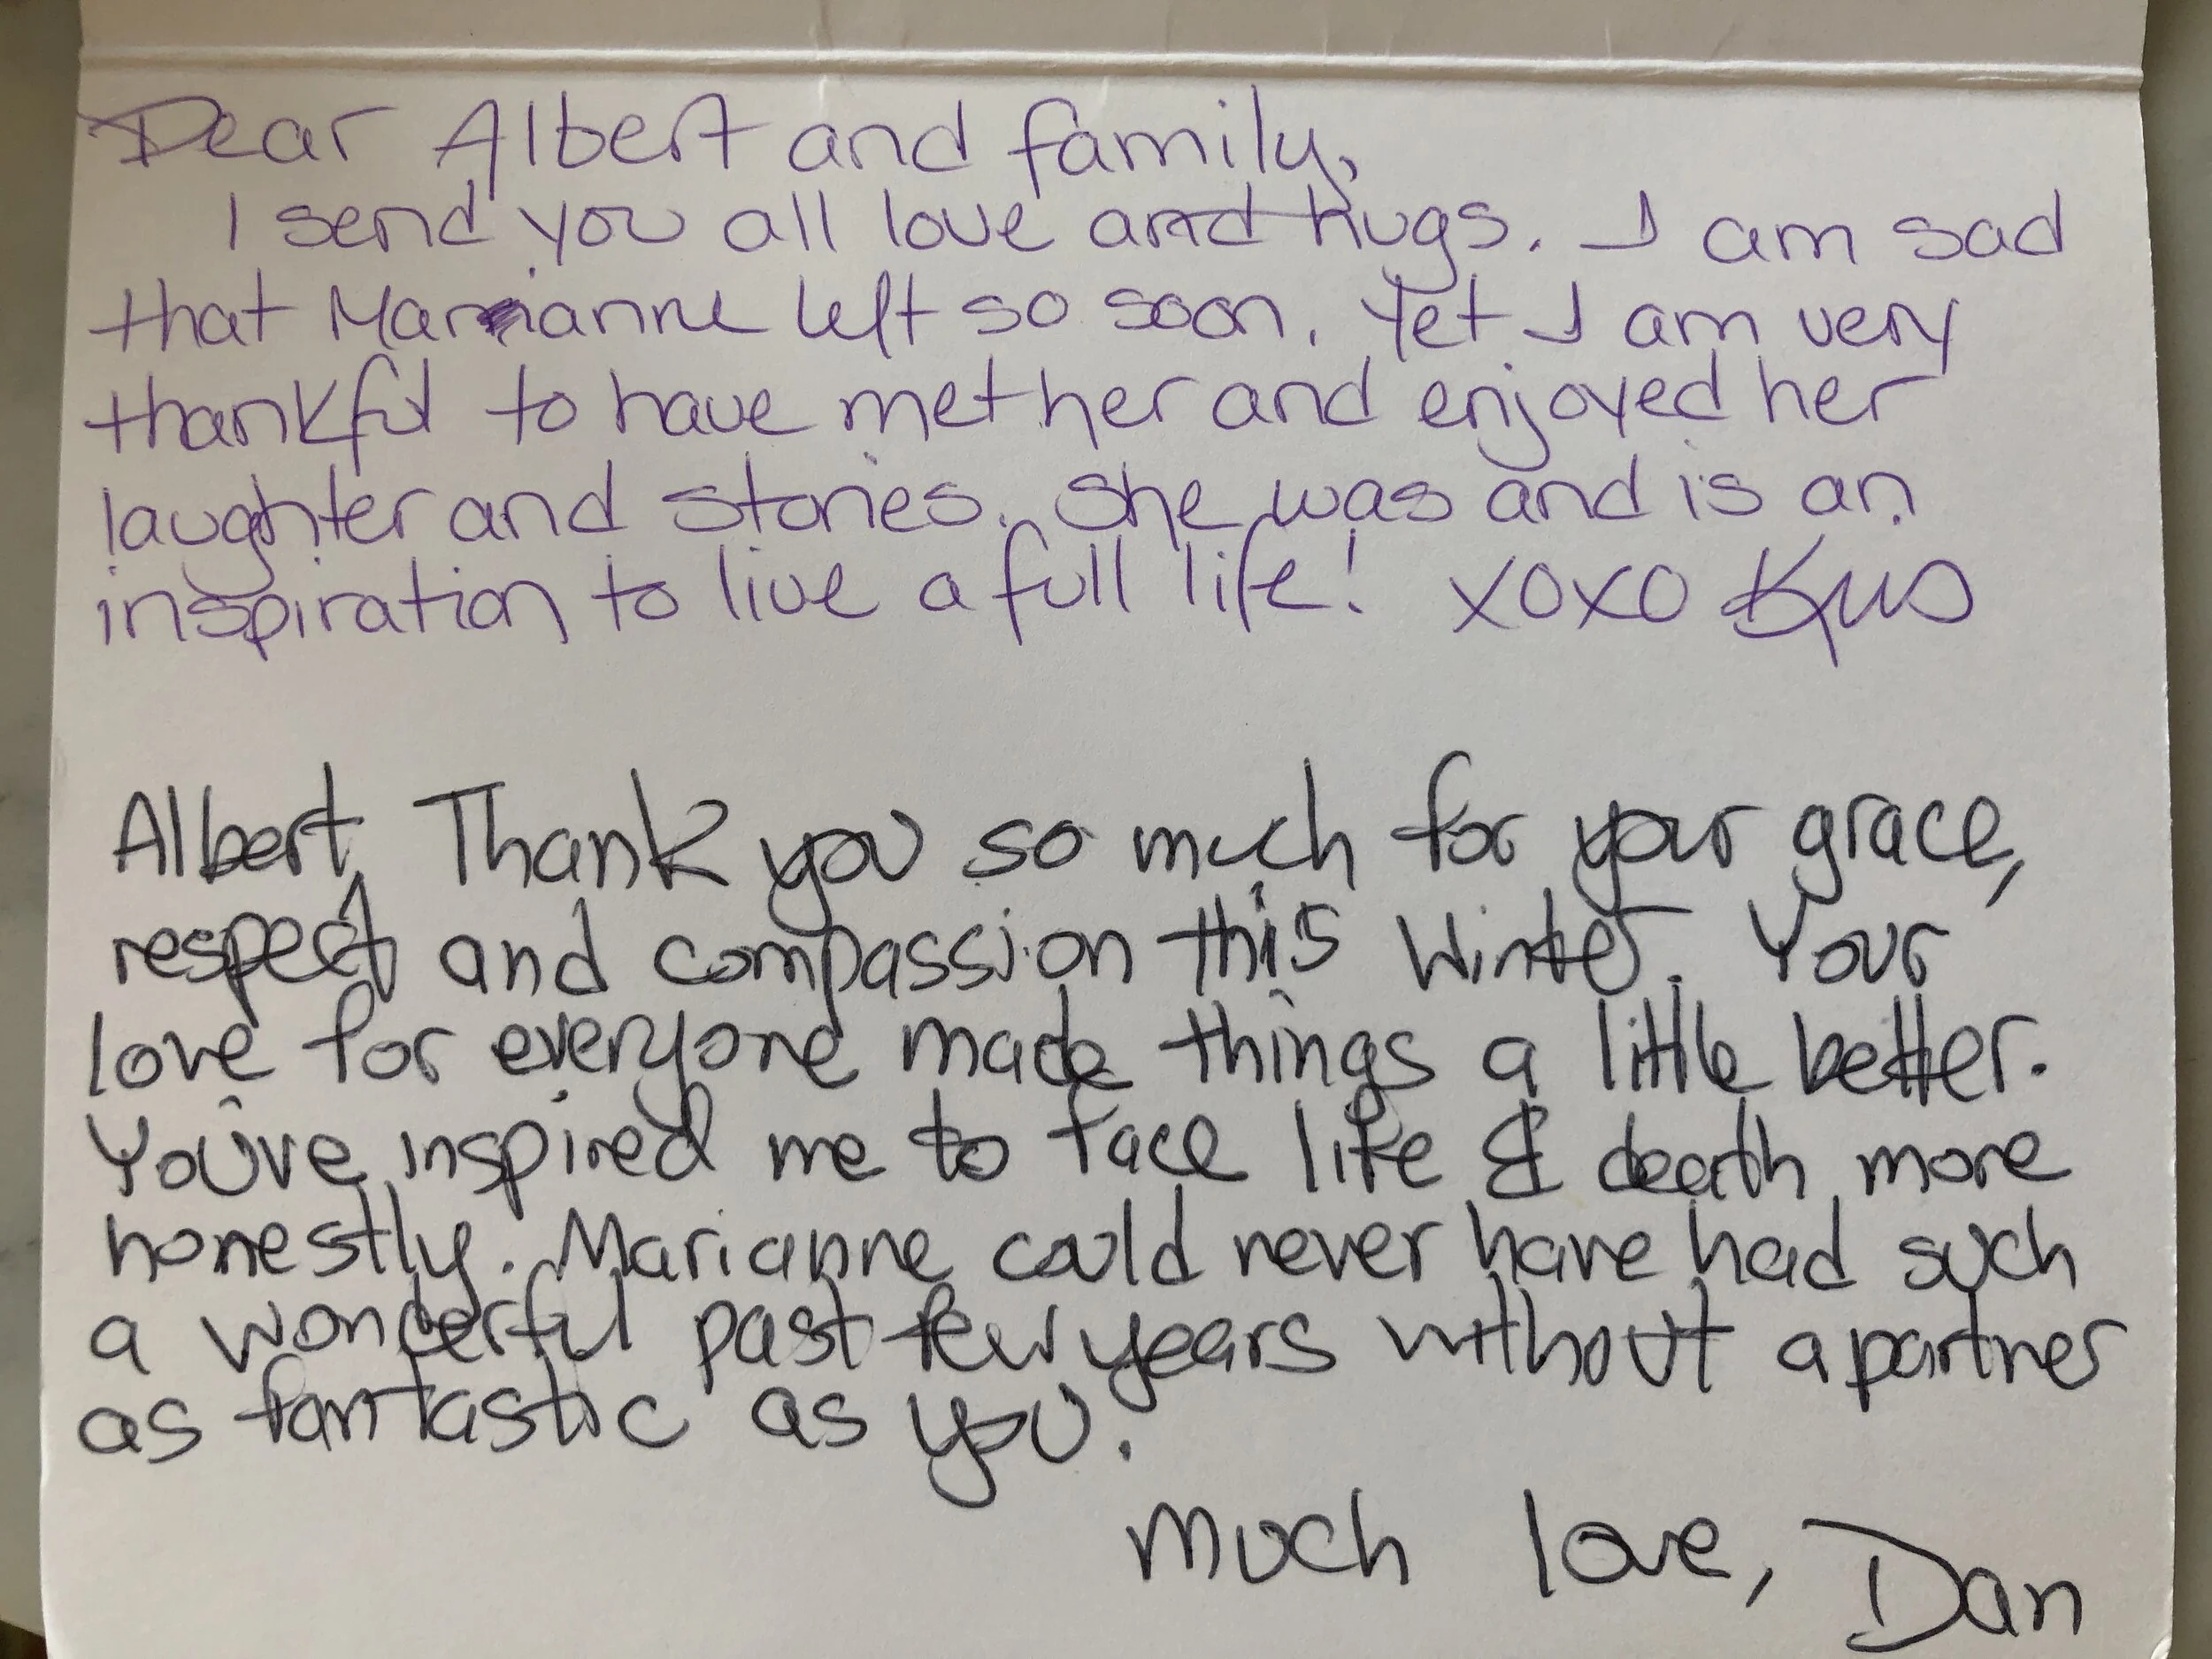 Dear Albert and family,
I send you all love and hugs. I am sad
that Marianne left so soon. Yet I am very
thankful to have met her and enjoyed her
laughter and stories. She was and is an
inspiration to live a full life! xoxo
Albert, Thank you so much for your grace,
respect and compassion this Winter. Your
love for everyone made things a little better.
You've inspired me to face life & death more
honestly. Marianne could never have had such
a wonderful past few years without a partner
as fantastic as you.
Much love, Dan